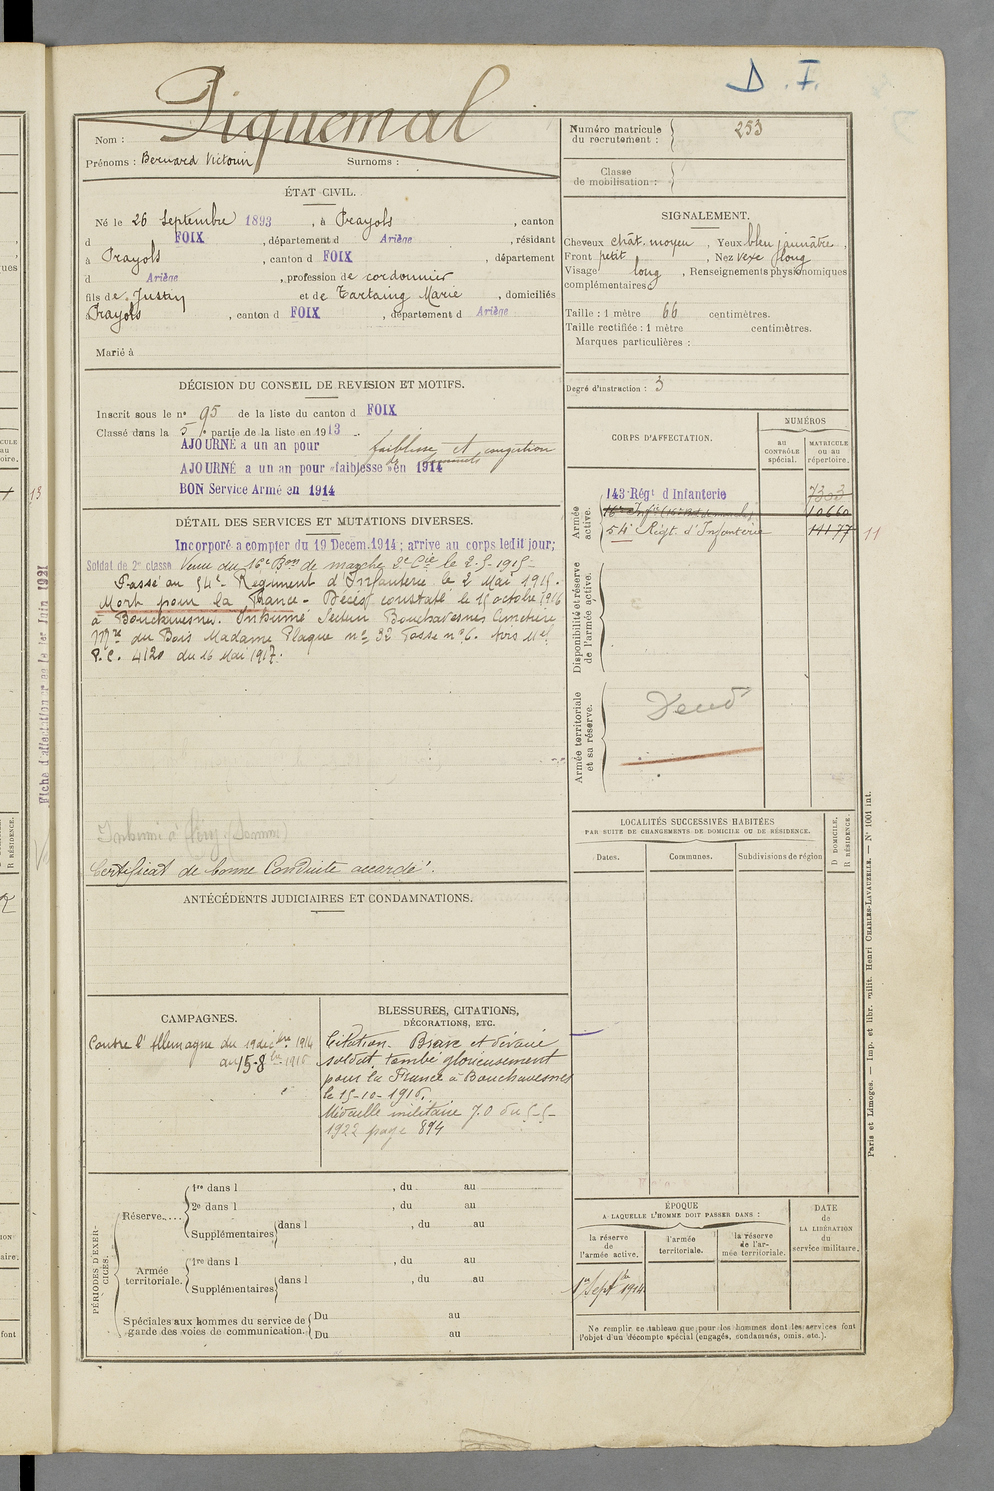 D. F.
Piquemal
Nom :
Prénoms : Bernard Victorin Surnoms :
Numéro matricule du recrutement : 253
Classe de mobilisation :
ÉTAT CIVIL.
Né le 26 Septembre 1893, à Prayols, canton
d FOIX, département d Ariège, résidant
à Prayols, canton d FOIX, département
d Ariège, profession de cordonnier
fils de Justin et de Tartaing Marie, domiciliés
à Prayols, canton d FOIX, département d Ariège
Marié à
SIGNALEMENT.
Cheveux chât. moyen, Yeux bleu jaunâtre,
Front petit, Nez vexe long
Visage long, Renseignements physionomiques
complémentaires
Taille : 1 mètre 66 centimètres.
Taille rectifiée : 1 mètre centimètres.
Marques particulières :
Degré d'instruction : 3
DÉCISION DU CONSEIL DE REVISION ET MOTIFS.
Inscrit sous le n° 95 de la liste du canton d FOIX
Classé dans la 5e partie de la liste en 1913.
AJOURNÉ a un an pour faiblesse et congestion
des sommets
AJOURNÉ a un an pour «faiblesse» en 1914
BON Service Armé en 1914
DÉTAIL DES SERVICES ET MUTATIONS DIVERSES.
Incorporé a compter du 19 Décem. 1914 ; arrive au corps ledit jour;
Soldat de 2e classe Venu du 16e Bon de marche 2e Cie le 2-5-1915-
Passé au 54e Régiment d'Infanterie le 2 Mai 1915.
Mort pour la France - Décès constaté le 15 octobre 1916
à Bouchavesnes. Inhumé Secteur Bouchavesnes Cimetière
Mre du Bois Madame Plaque n° 32 Fosse n° 6. Avis Mel
P.C. 4120 du 16 Mai 1917.
Inhumé à (Somme)
Certificat de bonne Conduite accordé.
CORPS D'AFFECTATION.
NUMÉROS
au CONTRÔLE spécial.
MATRICULE ou au répertoire.
Armée active.
143e Régt d'Infanterie 7303
10660
54e Régt. d'Infanterie 11177 11
Disponibilité et réserve de l'armée active.
Armée territoriale et sa réserve.
LOCALITÉS SUCCESSIVES HABITÉES
PAR SUITE DE CHANGEMENTS DE DOMICILE OU DE RÉSIDENCE.
Dates. Communes. Subdivisions de région
D DOMICILE.
R RÉSIDENCE.
ANTÉCÉDENTS JUDICIAIRES ET CONDAMNATIONS.
CAMPAGNES.
Contre l'Allemagne du 19 décbre 1914
au 15-8bre 1916
BLESSURES, CITATIONS,
DÉCORATIONS, ETC.
Citation. Brave et dévoué
soldat, tombé glorieusement
pour la France à Bouchavesnes
le 15-10-1916.
Médaille militaire J.O du 5-5-
1922 page 894
PÉRIODES D'EXERCICES.
Réserve.....
1re dans l , du au
2e dans l , du au
Supplémentaires dans l , du au
Armée territoriale.
1re dans l , du au
Supplémentaires dans l , du au
Spéciales aux hommes du service de garde des voies de communication. Du au
Du au
ÉPOQUE
A LAQUELLE L'HOMME DOIT PASSER DANS :
la réserve de l'armée active.
l'armée territoriale.
la réserve de l'armée territoriale.
DATE de LA LIBÉRATION du service militaire.
1er Septbre 1914
Ne remplir ce tableau que pour les hommes dont les services font
l'objet d'un décompte spécial (engagés, condamnés, omis, etc.).
Paris et Limoges. — Imp. et libr. milit. Henri CHARLES-LAVAUZELLE. — N° 1001 int.